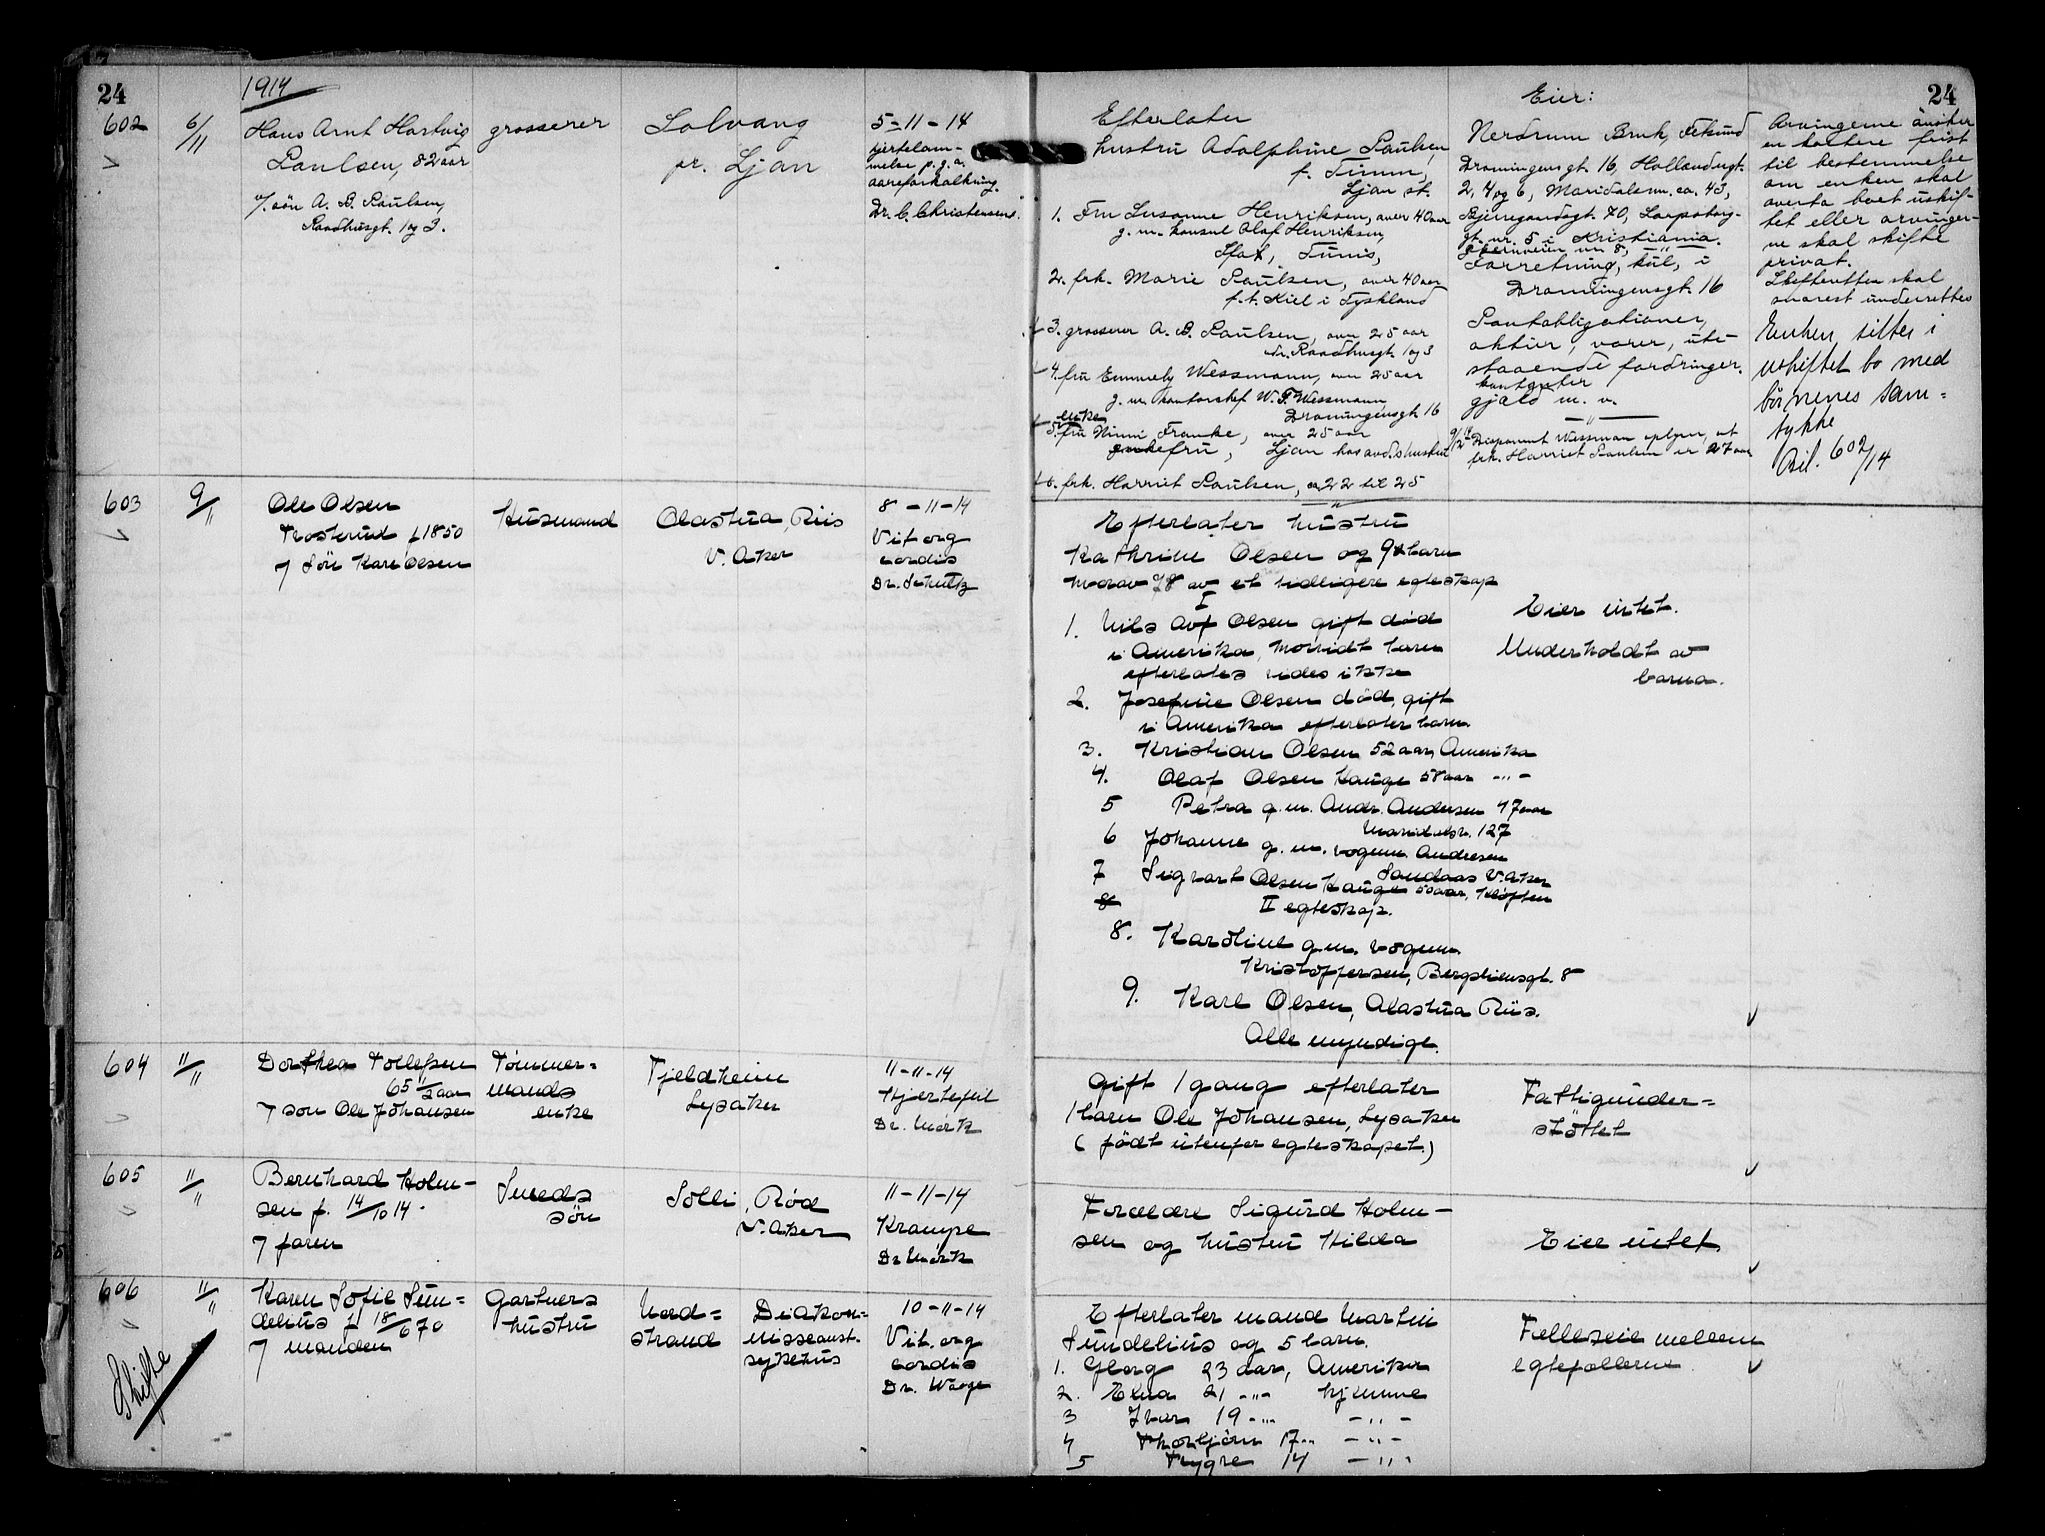 24
1914
602
6/11
Hans Arnt Hartvig
Paulsen, 82 aar
v/ søn A. B. Paulsen,
Raadhusgt. 1 og 3.
grosserer
Solvang
pr. Ljan
5-11-14
hjertelam-
melse p.g.a.
aareforkalkning.
Dr. C. Christensen.
Efterlater
hustru Adolphine Paulsen,
f. Timm,
Ljan st.
1. Fru Susanne Henriksen, over 40 aar
g. m. konsul Olaf Henriksen,
Sfax, Tunis,
2. frk. Marie Paulsen, over 40 aar
f.t. Kiel i Tyskland
3. grosserer A. B. Paulsen, over 25 aar
Raadhusgt. 1 og 3
4. fru Emmely Wessmann, over 25 aar
g. m. kontorchef W. F. Wessmann
Dronningensgt. 16
enke
5. fru Ninni Franke, over 25 aar
enkefru, Ljan hos avd.s hustru
6. frk. Harriet Paulsen, ca 22 til 25
Eier:
Nerdrum Bruk, Fetsund
Dronningensgt. 16, Hollendergt.
2, 4 og 6, Maridalsvn. ca. 43,
Bjerregaardsgt. 70, Sarpsborg-
gt. nr. 5 i Kristiania.
Forretning, kul, i
Dronningensgt. 16
Pantobligationer,
aktier, varer, ute-
staaende fordringer.
kontanter
gjæld m. v.
9/12 14 Disponent Wessman oplyser, at
frk. Harriet Paulsen er 27 aar
24
Arvingerne ønsker
en kortere frist
til bestemmelse
om enken skal
overta boet uskif-
tet eller arvinger-
ne skal skifte
privat.
Skifteretten skal
snarest underrettes
Enken sitter i
uskiftet bo med
børnenes sam=
tykke
Bil. 602/14
603
9/11
Ole Olsen
Trosterud f 1850
7 Søn Karl Olsen
Husmand
Olastua, Riis
V. Aker
8-11-14
Vit. org
cordis
Dr. Schultz
Efterlater hustru
Kathrine Olsen og 9 barn
hvorav 7 av et tidligere egteskap
I
1. Nils Olsen gift død
i Amerika, hvorvidt barn
efterlates vides ikke
2. Josefine Olsen død, gift
i Amerika efterlater barn.
3. Kristian Olsen 52 aar, Amerika
4. Olaf Olsen Hauge 58 aar -"-
5 Petra g. m. Andr. Andersen 47 aar
Maridalsv. 127
6 Johanne g. m. vognm. Andresen
Sandaas V. Aker
7 Sigvart Olsen Hauge 50 aar, Kløften
8
II egteskap.
8. Karoline g.m. vognm.
Kristoffersen, Bergsliensgt. 8
9. Karl Olsen, Olastua Riis.
Alle myndige.
Eier intet.
Underholdt av
barna.
604
11/11
Dorthea Tollefsen
65 1/2 aar
7 søn Ole Johansen
Tømmer=
mands
enke
Fjeldheim
Lysaker
11-11-14
Hjertefeil
Dr. Mørk
Gift 1 gang efterlater
1 barn Ole Johansen, Lysaker
(født utenfor egteskapet.)
Fattigunder=
støttet
605
11/11
Bernhard Holm-
sen f. 14/10 14.
7 faren
Smeds
søn
Solli, Rød
V. Aker
11-11-14
Krampe
Dr. Mørk
Forældre Sigurd Holm-
sen og hustru Hilda
Eier intet.
606
11/11
Karen Sofie Sun=
delius f 18/6 70
7 manden
Skifte
Gartners
hustru
Nord=
strand
Diakon=
nisseanst.
sykehus
10-11-14
Vit. org
cordis
Dr. Waage
Efterlater mand Martin
Sundelius og 5 barn.
1. Georg 23 aar, Amerika
2. Edna 21 -"- hjemme
3 Ivar 19 -"- -"-
4 Thorbjørn 17 -"- -"-
5 Trygve 14 -"-
Fælleseie mellem
egtefællerne.